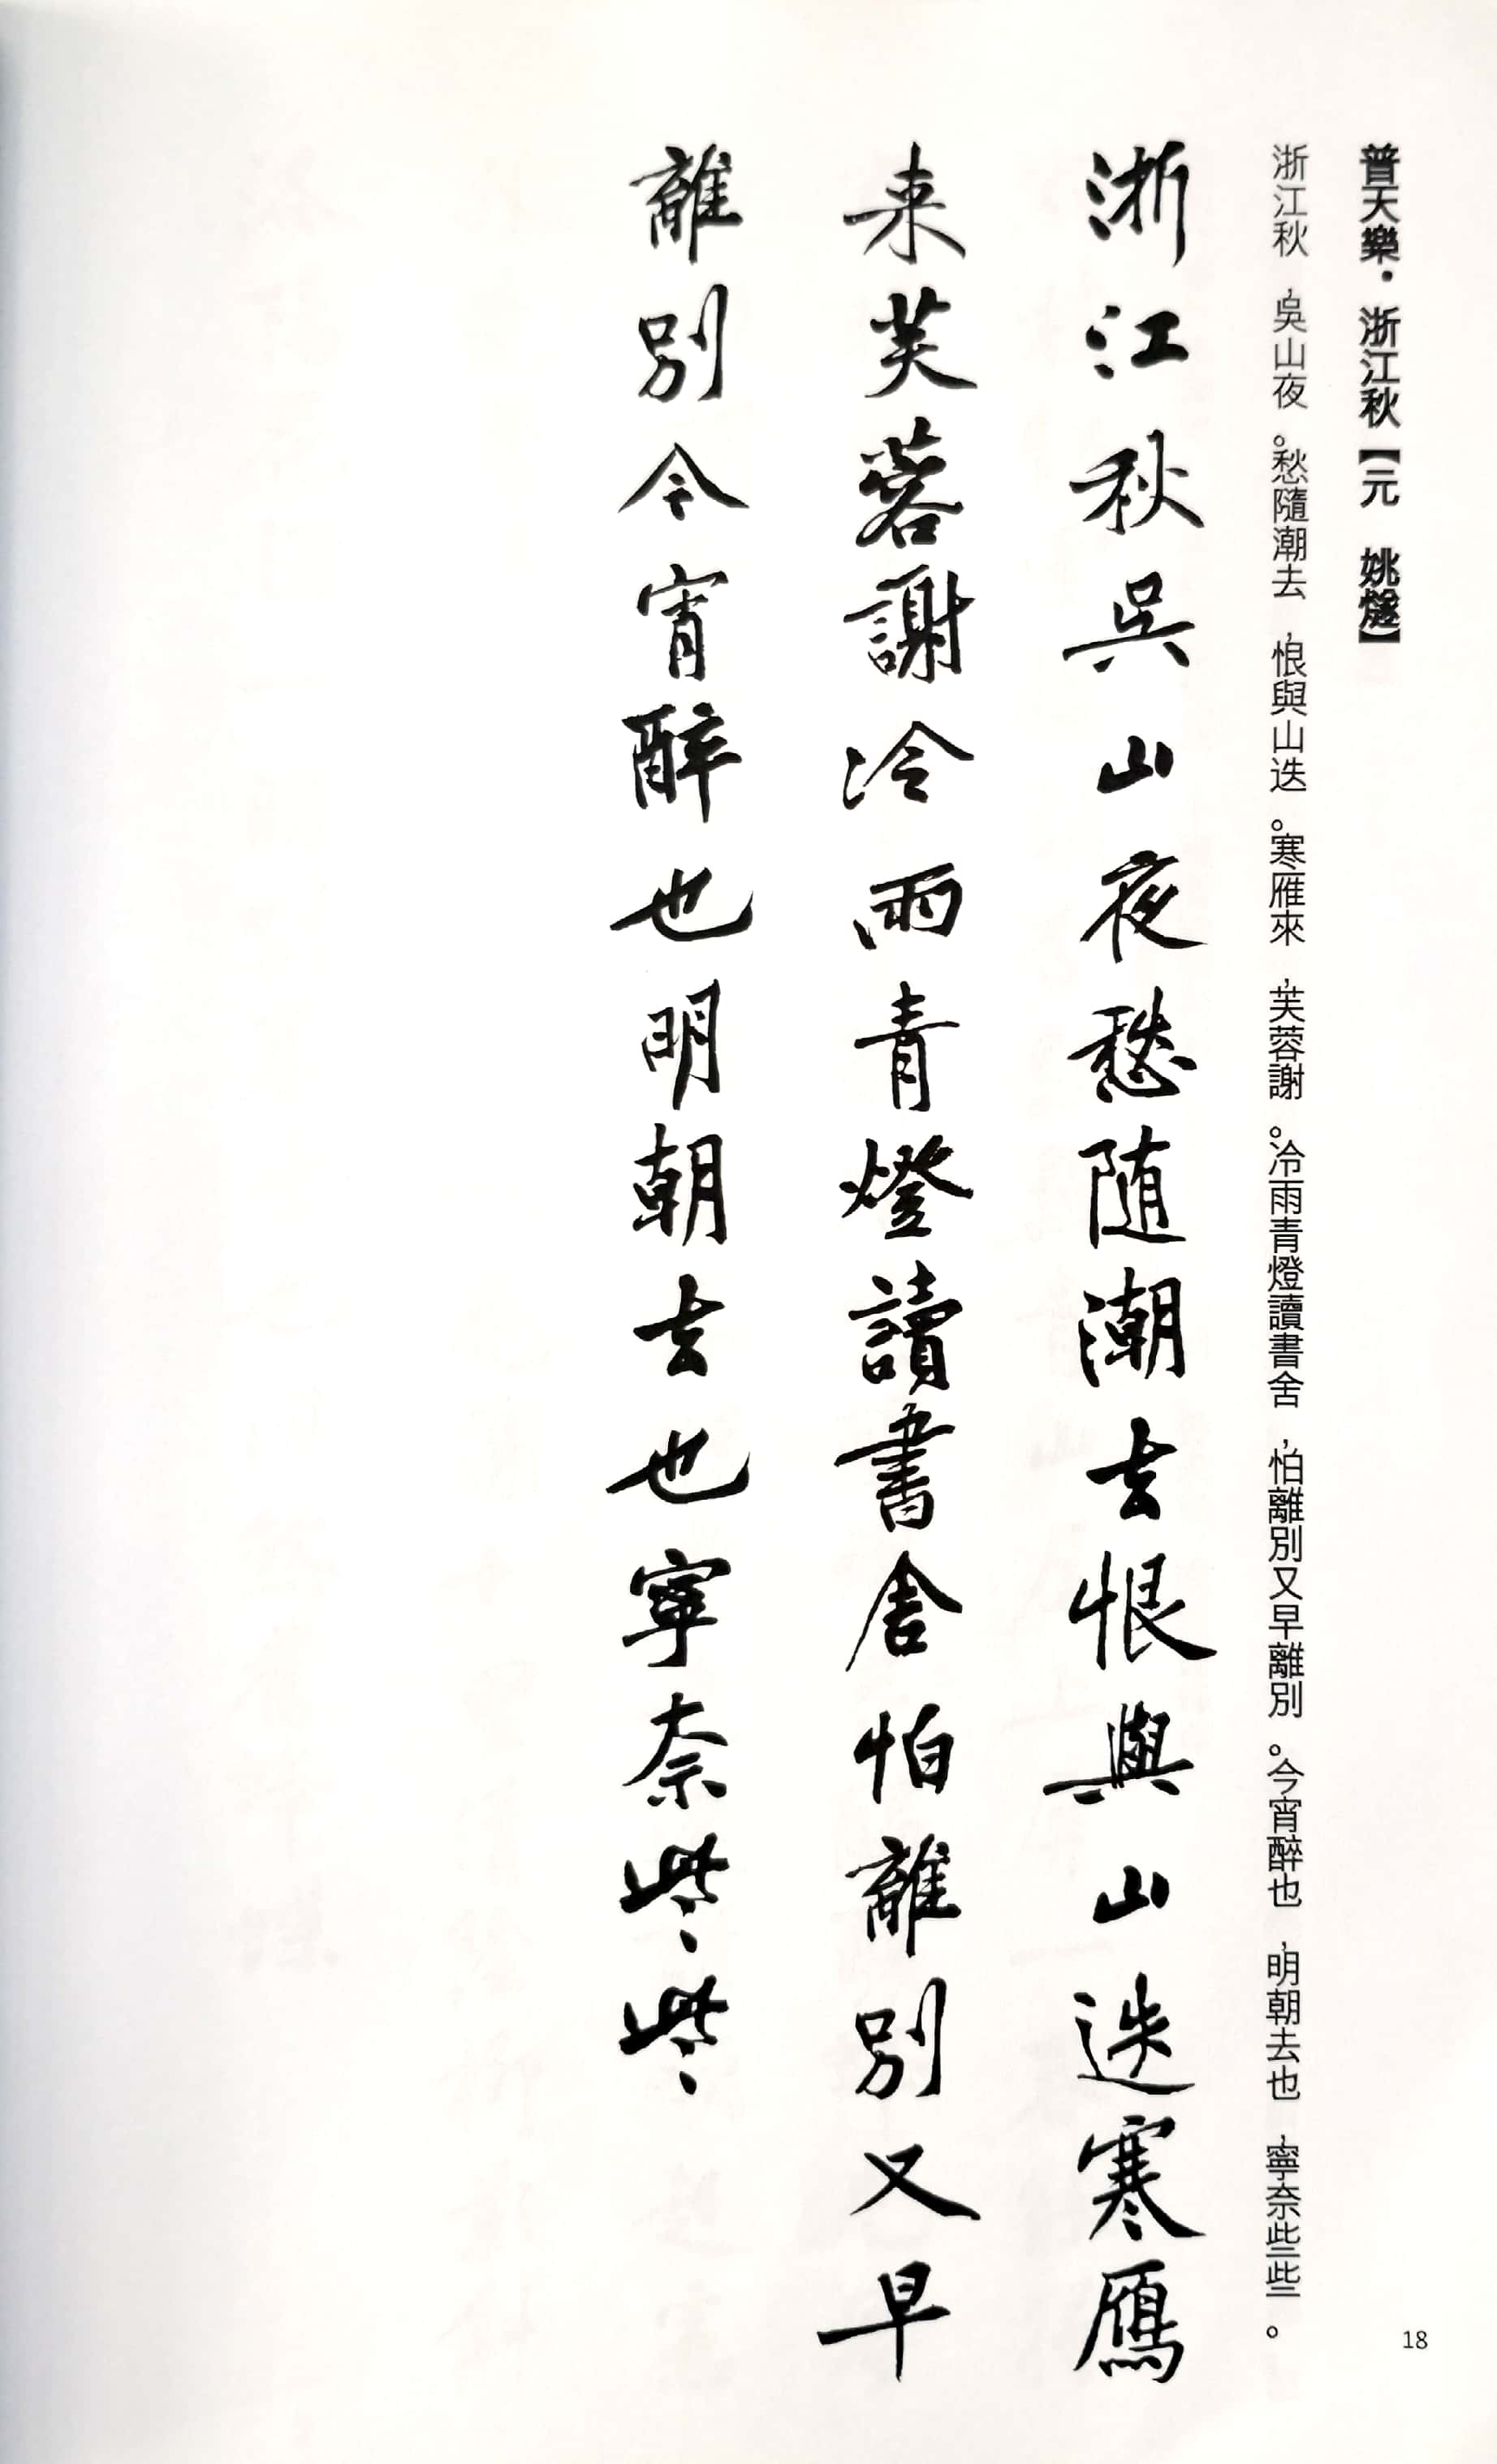 普天樂·浙江秋【元 姚燧】
浙江秋，吳山夜。愁隨潮去，恨與山迭。寒雁來，芙蓉謝。冷雨青燈讀書舍，怕離別又早離別。今宵醉也，明朝去也，寧奈些些。
浙江秋吳山夜愁随潮去恨與山迭寒鴈
来芙蓉謝冷雨青燈讀書舍怕離別又早
離別今宵醉也明朝去也寧奈些些
18